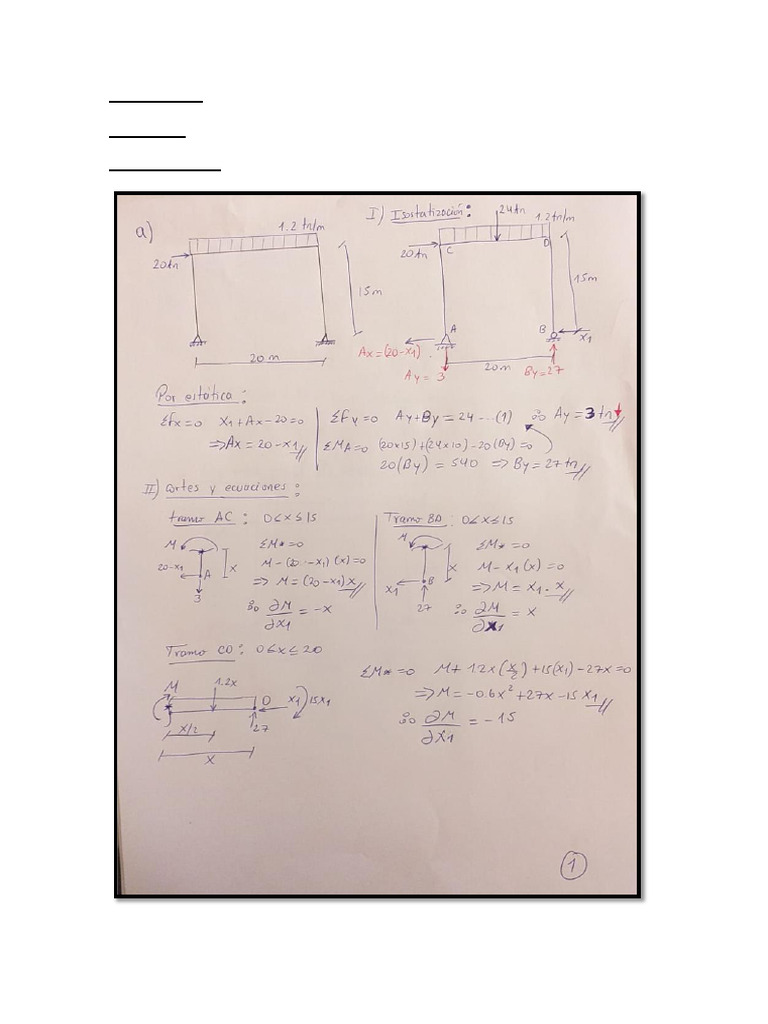 a)
1.2 tn/m
20tn
15m
20 m
I) Isostatización:
24tn
1.2 tn/m
20tn
C
D
15m
A
B
x1
Ax=(20-x1)
Ay= 3
20m
By=27
Por estática:
ΣFx=0 x1+Ax-20=0
⇒Ax = 20-x1
ΣFy=0 Ay+By=24 ...(1) ∴ Ay=3tn↓
ΣMA=0 (20x15)+(24x10)-20(By)=0
20(By) = 540 ⇒ By=27tn
II) Cortes y ecuaciones:
tramo AC: 0≤x≤15
M
20-x1
A
x
3
ΣM*=0
M-(20-x1)(x)=0
⇒ M=(20-x1)x
∴ ∂M/∂x1 = -x
Tramo BD: 0≤x≤15
M
x1
B
x
27
ΣM*=0
M-x1(x)=0
⇒M= x1.x
∴ ∂M/∂x1 = x
Tramo CD: 0≤x≤20
M
1.2x
D
x1
15x1
27
x/2
x
ΣM*=0 M+ 1.2x(x/2)+15(x1)-27x=0
⇒M=-0.6x²+27x-15x1
∴ ∂M/∂x1 = -15
1